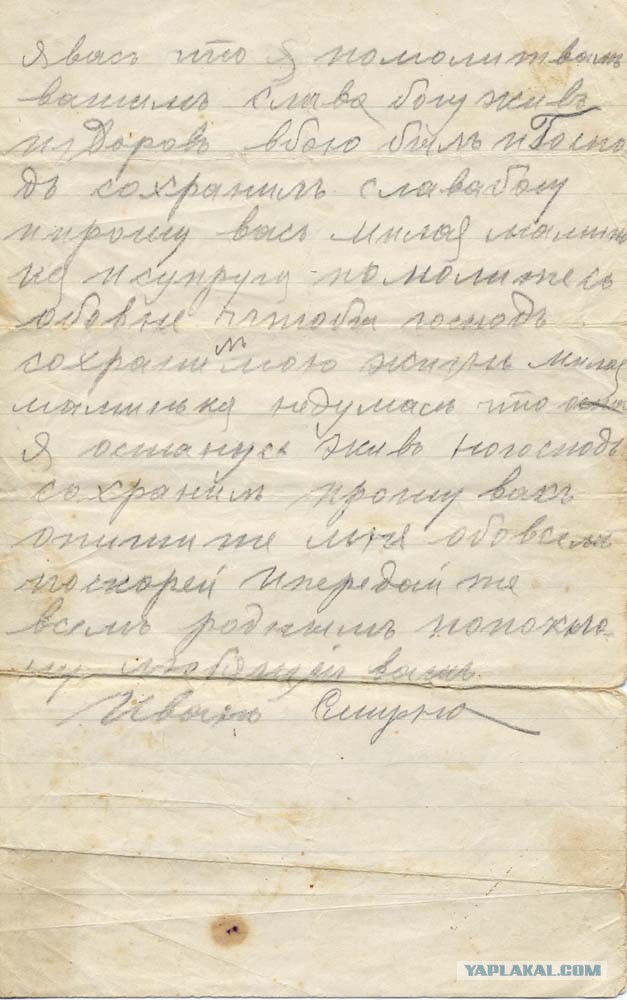 я вас что я помолитвамъ
вашимъ слава богу живъ
издоровъ вбою былъ и Госпо
дь сохранилъ славабогу
ипрошу васъ милая мамин
ка исупруга помолитесь
обовне чтобы господь
сохранилъ мою жизнь милая
маминька недумалъ что
я останусь живъ ногосподь
сохранилъ прошу васъ
опишите мня обовсемъ
поскорей ипередайте
всемъ роднымъ попокло
ну любящей вашъ
Иванъ Смирно
YAPLAKAL.COM